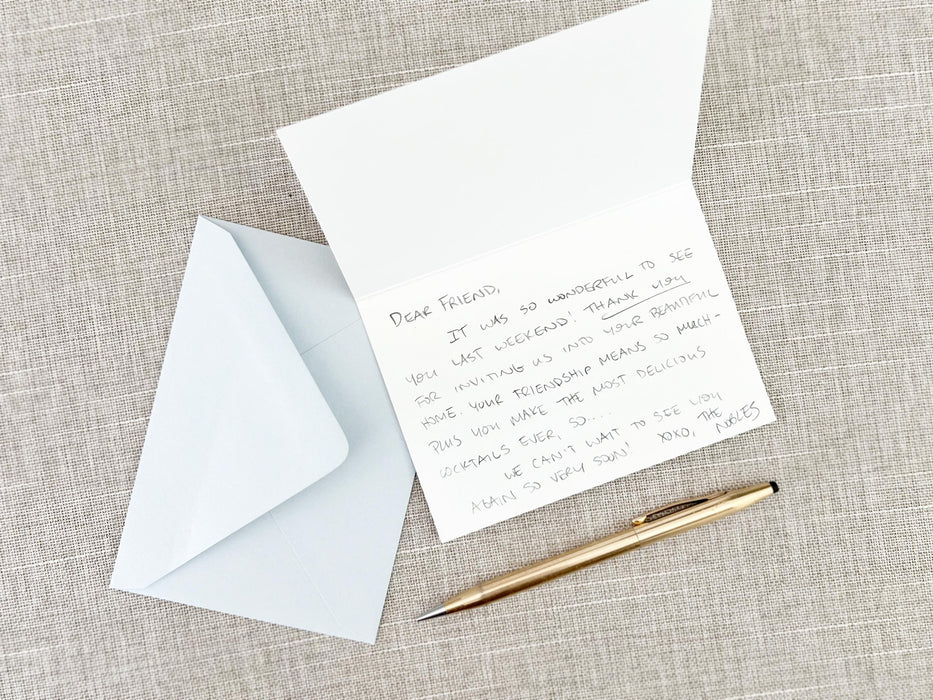 DEAR FRIEND,
IT WAS SO WONDERFUL TO SEE
YOU LAST WEEKEND! THANK YOU
FOR INVITING US INTO YOUR BEAUTIFUL
HOME. YOUR FRIENDSHIP MEANS SO MUCH-
PLUS YOU MAKE THE MOST DELICIOUS
COCKTAILS EVER, SO....
WE CAN'T WAIT TO SEE YOU
AGAIN SO VERY SOON! XOXO, THE
NOBLES